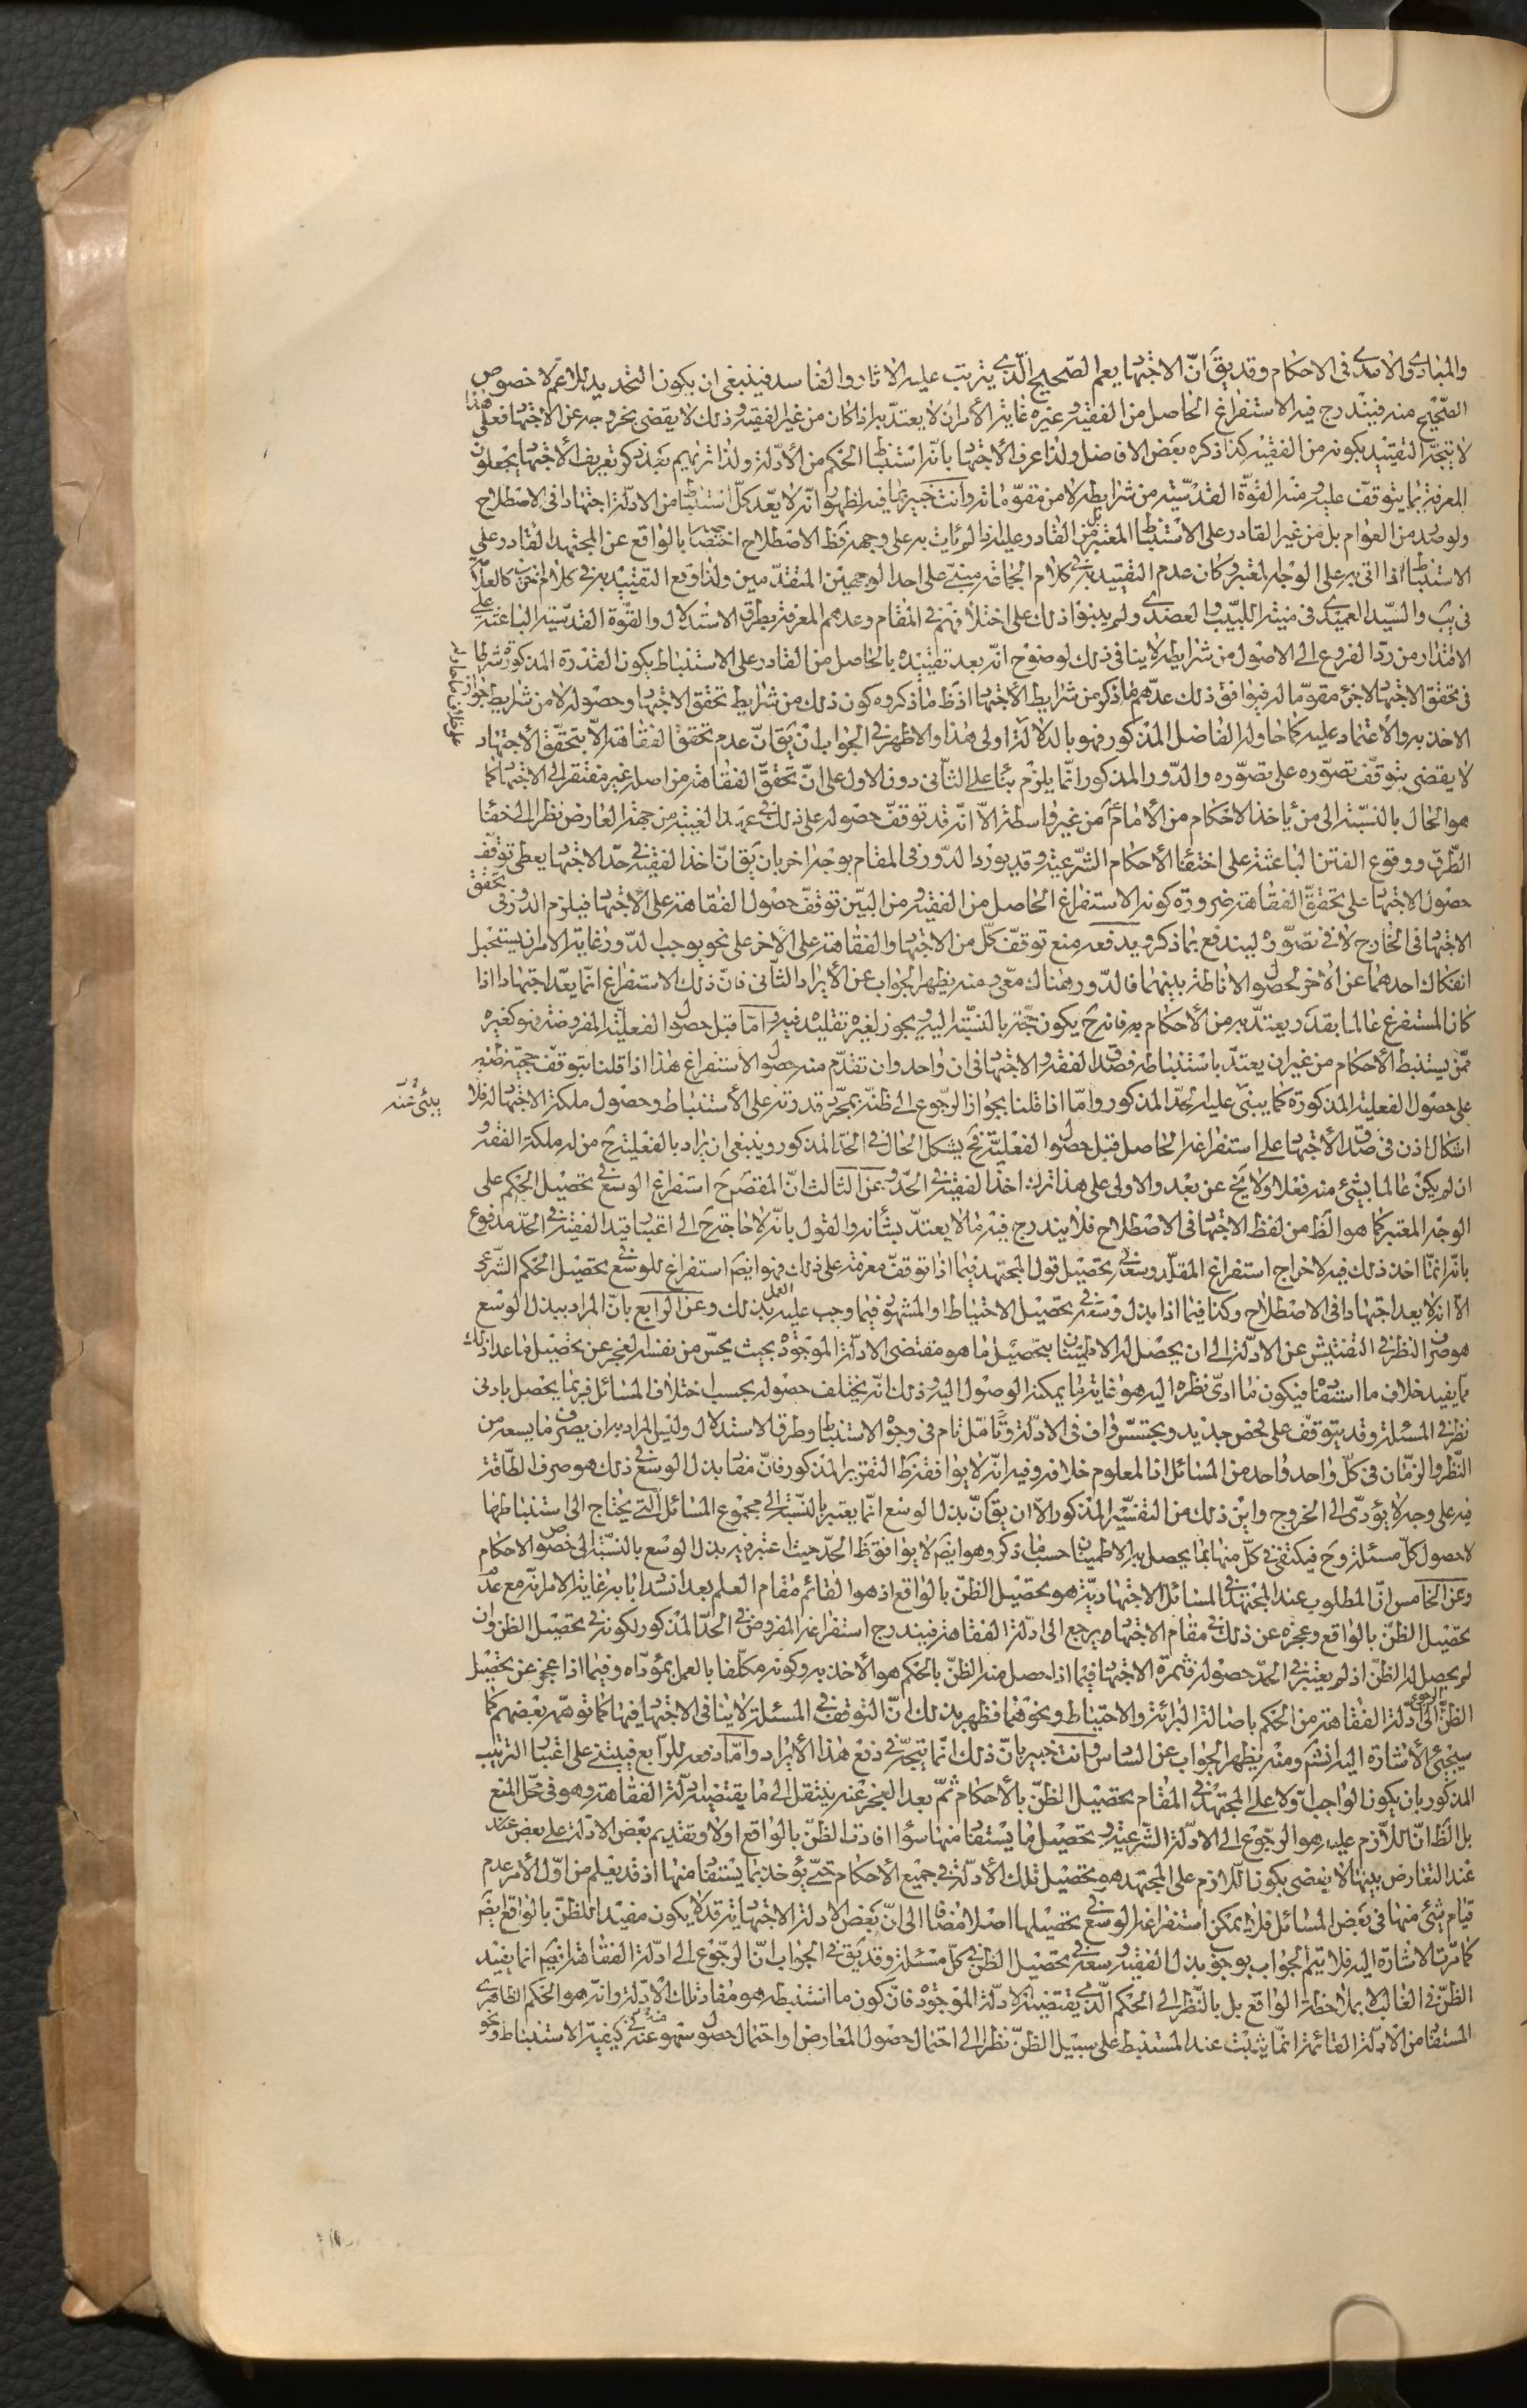 والمبادى والآمدى فى الاحكام وقد يقَ انّ الاجتهاد يعم الصّحيح الّذى يترتب عليه الاثار والفاسد فينبغى ان يكون التحديد للاعم لا خصوص
الصّحيح منه فيندرج فيه الاستفراغ الحاصل من الفقيه وغيره غاية الأمر ان لا يعتدّ به اذا كان من غير الفقيه وذلك لا يقضى بخروجه عن الاجتهاد فعلى هذا
لا يتجه التقييد بكونه من الفقيه كذا ذكره بعض الافاضل ولذا عرف الأجتهاد بانّه استنباط الحكم من الأدلّة ولذا تريهم بعد ذكر تعريف الأجتهاد يجعلون
المعرفة بما يتوقف عليه منه القوّة القدسّية من شرايطه لا من مقوّماته وانت خبير بما فيه لظهور انّه لا يعّد كلّ استنباط من الادلّة اجتهادا فى الاصطلاح
ولو صدر من العوام بل من غير القادر على الاستنباط المعتبر بل من القادر عليه اذا لم يات به على وجهه فظ الاصطلاح اختصاصه بالواقع عن المجتهد القادر على
الاستنباط اذا اتى به على الوجه المعتبر وكان عدم التقييد به فى كلام الجماعة مبنى على احد الوجهين المتقدّمين ولذا وقع التقييد به فى كلام اخرين كالعلّامة
فى يب والسّيد العميدى فى منية اللبيب والعضدى ولم ينبهوا ذلك على اختلافهم فى المقام وعدهم المعرفة بطرق الاستدلال والقوّة القدسّية الباعثة على
الاقتدار من ردّ الفروع الى الاصول من شرايطه لا ينافى ذلك لوضوح انّه بعد تقييده بالحاصل من القادر على الاستنباط يكون القدرة المذكورة شرطا
فى تحقق الاجتهاد لا جزء مقوّما له فيوافق ذلك عدّهم ما ذكر من شرايط الأجتهاد اذ ظ ما ذكروه كون ذلك من شرايط تحقق الاجتهاد وحصوله لا من شرايط جواز
الاخذ به والاعتماد عليه كما حاوله الفاضل المذكور فهو بالدلالة اولى هذا والاظهر فى الجواب ان يقَ انّ عدم تحقق الفقاهة الّا بتحقّق الأجتهاد
على خلاف ما حاوله
لا يقضى بتوقّف تصوّره على تصوّره والدّور المذكور انّما يلزم بناء على الثّانى دون الاول على انّ تحقّق الفقاهة من اصله غير مفتقر الى الاجتهاد كما
هو الحال بالنسبّة الى من ياخذ الاحكام من الأمام من غير واسطة الّا انّه قد توقف حصوله على ذلك فى عهد الغيبة من جهة العارض نظرا الى خفاء
الطّرق ووقوع الفتن الباعثة على اختفاء الأحكام الشّرعية وقد يورد الدّور فى المقام بوجه اخر بان يقَ انّ اخذ الفقيه فى حدّ الاجتهاد يعطى توقّف
حصول الاجتهاد على تحقّق الفقاهة ضرورة كونه الاستفراغ الحاصل من الفقيه ومن البيّن توقّف حصول الفقاهة على الأجتهاد فيلزم الدّور فى تحقّق
الاجتهاد فى الخارج لا فى تصوّره ليندفع بما ذكر ويدفعه منع توقّف كلّ من الاجتهاد والفقاهة على الأخر على نحو يوجب الدّور وغاية الامر ان يستحيل
انفكاك احدهما عن الأخر لحصول الاناطة بينهما فالدّور هناك معّى ومنه يظهر الجواب عن الأيراد الثّانى فانّ ذلك الاستفراغ انّما يعّد اجتهادا اذا
كان المستفرغ عالما بقدر يعتدّ به من الأحكام به فانه حَ يكون حجّة بالنسبّة اليه ويجوز لغيره تقليده فيه وامّا قبل حصول الفعلية المفروضة فهو كغيره
ممّن يستنبط الأحكام من غير ان يعتدّ باستنباطه فصدق الفقه والاجتهاد فى ان واحد وان تقدّم منه حصول الأستفراغ هذا اذا قلنا بتوقف حجيّة ظنه
على حصول الفعلية المذكورة كما يبنى عليه الحدّ المذكور وامّا اذا قلنا بجواز الرّجوع الى ظنّه بمجّرد قدرته على الأستنباط وحصول ملكة الاجتهاد له فلا
اشكال اذن فى صدق الأجتهاد على استفراغه الحاصل قبل حصول الفعليّة فحَ يشكل الحال فى الحدّ المذكور وينبغى ان يراد بالفقيه حَ من له ملكة الفقه و
ان لم يكن عالما بشئ منه فعلا ولا يخ عن بعد والاولى على هذا ترك اخذ الفقيه فى الحدّ وعن الثالث انّ المقصَ حَ استفراغ الوسع فى تحصيل الحكم على
الوجه المعتبر كما هو الظ من لفظ الاجتهاد فى الاصطلاح فلا يندرج فيه ما لا يعتدّ بشأنه والقول بانّه لا حاجة حَ الى اعتبار قيد الفقيه فى الحدّ مدفوع
بانّه انّما اخذ ذلك فيه لاخراج استفراغ المقلّد وسعه فى تحصيل قول المجتهد فيما اذا توقفّ معرفته على ذلك فهو ايضَ استفراغ للوسع فى تحصيل الحكم الشّرعى
الّا انّه لا يعد اجتهادا فى الاصطلاح وكذا فيما اذا بذل وسعه فى تحصيل الاحتياط او المشهور فيما وجب عليه العمل بذلك وعن الرّابع بانّ المراد ببذل الوسع
هو صرف النظر فى التفتيش عن الادلّة الى ان يحصل له الاطمينان بتحصيل ما هو مقتضى الادلّة الموجودة بحيث يحسّ من نفسه العجز عن تحصيل ما عدا ذلك
ما يفيد خلاف ما استفاده فيكون ما ادّى نظره اليه هو غاية ما يمكنه الوصول اليه وذلك انّه يختلف حصوله بحسب اختلاف المسائل فربما يحصل بادنى
نظر فى المسئلة وقد يتوقّف على فحص جديد وتجسّس واف فى الادلّة وتامّل تام فى وجوه الاستنباط وطرق الاستدلال وليس المراد به ان يصرف ما يسعه من
النّظر والزمّان فى كلّ واحد واحد من المسائل اذ المعلوم خلافه وفيه انّه لا يوافقه ظ التقرير المذكور فانّ مفاد بذل الوسع فى ذلك هو صرف الطّاقة
فيه على وجه لا يؤدّى الى الخروج واين ذلك من التفسّير المذكور الّا ان يقَ انّ بذل الوسع انّما يعتبر بالنّسبة الى مجموع المسائل الّتى يحتاج الى استنباطها
لا حصول كلّ مسئلة وحَ فيكتفى فى كلّ منها بما يحصل به الاطمينان حسب ما ذكر وهو ايضَ لا يوافق ظ الحدّ حيث اعتبر فيه بذل الوسع بالنسّبة الى خصوص الاحكام
وعن الخامس انّ المطلوب عند المجتهد فى المسائل الاجتهاديّة هو تحصيل الظنّ بالواقع اذ هو القائم مقام العلم بعد انسداد بابه غاية الامر انّه مع عدم
تحصيل الظنّ بالواقع وعجزه عن ذلك فى مقام الاجتهاد يرجع الى ادلّة الفقاهة فيندرج استفراغه المفروض فى الحدّ المذكور لكونه فى تحصيل الظن وان
لم يحصل له الظنّ اذ لم يعتبر فى الحدّ حصوله فثمرة الاجتهاد فيما اذا حصل منه الظنّ بالحكم هو الأخذ به وكونه مكلّفا بالعمل بمؤدّاه وفيما اذا عجز عن تحصيل
الظنّ الرّجوع الى ادلّة الفقاهة من الحكم باصالة البرائة والاحتياط ونحوهما فظهر بذلك انّ التوقف فى المسئلة لا ينافى الاجتهاد فيها كما توهّمه بعضهم كما
سيجئ الأشارة اليه انشَم ومنه يظهر الجواب عن السادس وانت خبير بانّ ذلك انّما يتجه فى دفع هذا الأيراد وامّا دفعه للرّابع فيبتنى على اعتبار الترتيب
المذكور بان يكون الواجب اولا على المجتهد فى المقام تحصيل الظنّ بالأحكام ثمّ بعد العجز عنه ينتقل الى ما يقتضيه ادلّة الفقاهة وهو فى محّل المنع
بل الظ انّ اللّازم عليه هو الرّجوع الى الادلّة الشّرعية وتحصيل ما يستفاد منها سواء افادت الظنّ بالواقع اولا وتقديم بعض الادلّة على بعض عند
عند التعارض بينها لا يقضى بكون اللّازم على المجتهد هو تحصيل تلك الأدلّة فى جميع الأحكام حتّى يؤخذ بما يستفاد منها اذ قد يعلم من اوّل الأمر عدم
قيام شئ منها فى بعض المسائل فلا يمكن استفراغه الوسع فى تحصيلها اصلا مضافا الى انّ بعض الادلّة الاجتهادية قد لا يكون مفيدا للظنّ بالواقع ايضَ
كما مرّت الاشارة اليه فلا يتم الجواب بوجوب بذل الفقيه وسعه فى تحصيل الظن فى كلّ مسئلة وقد يقَ فى الجواب انّ الرّجوع الى ادلّة الفقاهة ايضَ انما يفيد
الظنّ فى الغالب لا بملاحظة الواقع بل بالنّظر الى الحكم الّذى يقتضيه الادلّة الموجودة فانّ كون ما استنبطه هو مفاد تلك الأدلّة وانّه هو الحكم الظاهرى
المستفاد من الأدلّة القائمة انّما يثبت عند المستنبط على سبيل الظنّ نظرا الى احتمال حصول المعارض او احتمال حصول سهو عنه فى كيفية الاستنباط ونحو